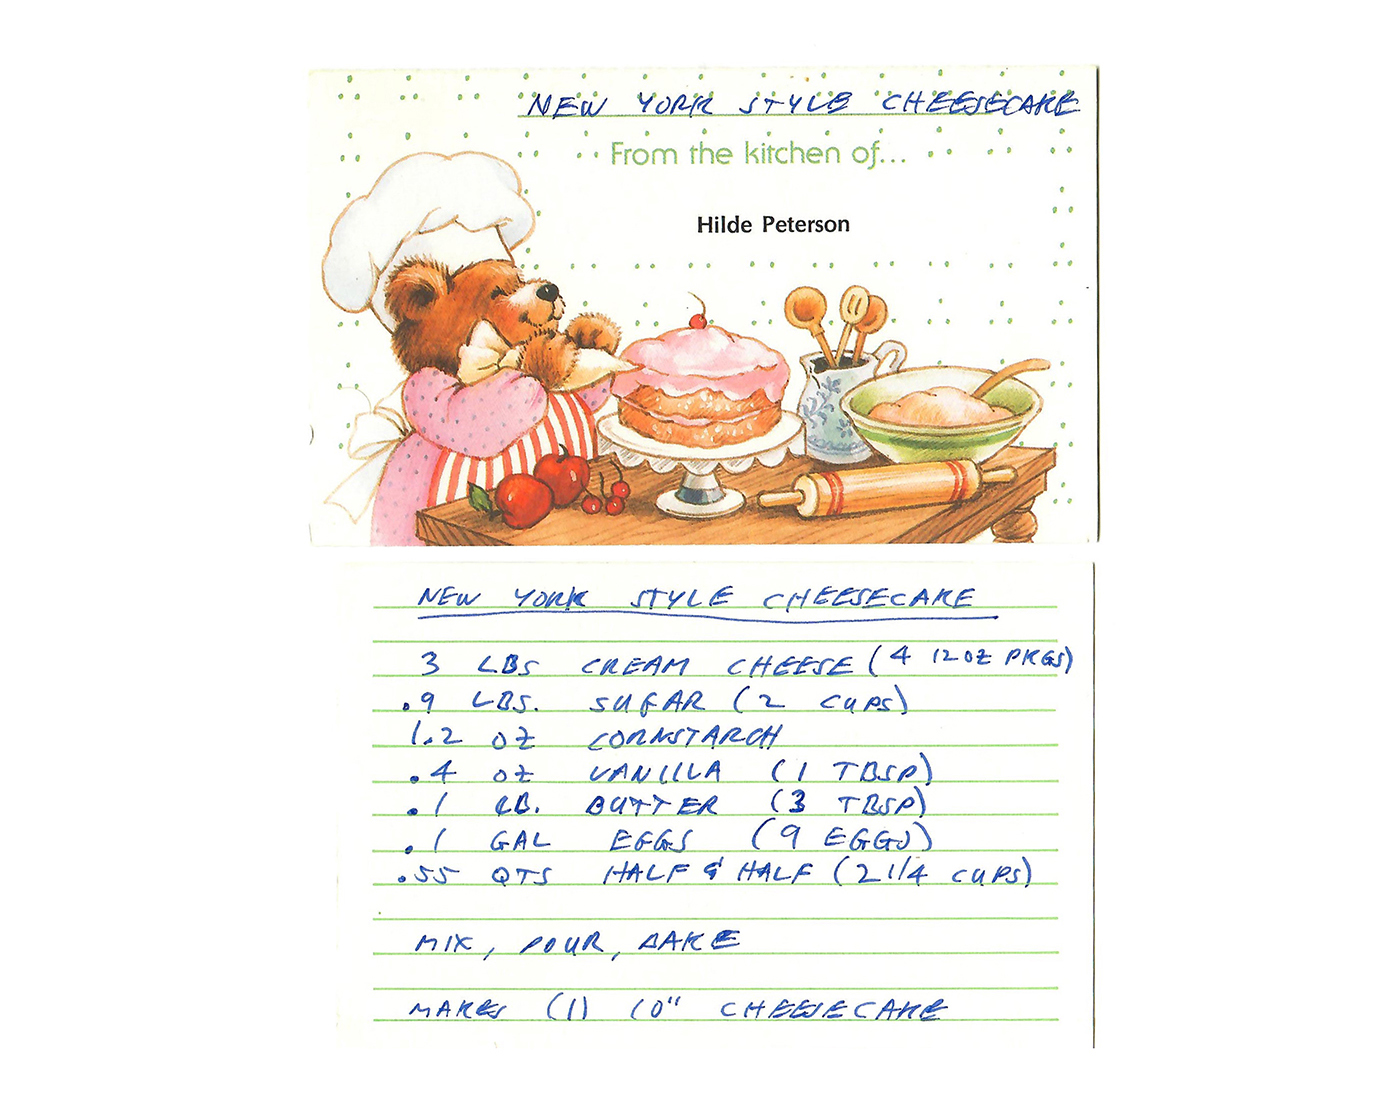 NEW YORK STYLE CHEESECAKE
From the kitchen of...
Hilde Peterson
NEW YORK STYLE CHEESECAKE
3 LBS CREAM CHEESE (4 12 OZ PKGS)
.9 LBS. SUGAR (2 CUPS)
1.2 OZ CORNSTARCH
.4 OZ VANILLA (1 TBSP)
.1 LB. BUTTER (3 TBSP)
.1 GAL EGGS (9 EGGS)
.55 QTS HALF & HALF (2 1/4 CUPS)
MIX, POUR, BAKE
MAKES (1) 10" CHEESECAKE